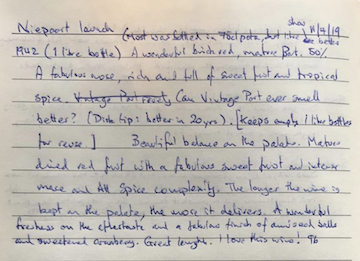 Niepoort launch (Most was bottled in 75cl pots, but 1 litre better show 11/9/19
1942 (1 litre bottle) A wonderful brick red, mature Port. 50%
A fabulous nose, rich and full of sweet fruit and tropical
spice. Vintage Port Can Vintage Port ever smell
better? [Dirk tip: better in 20 yrs). [Keeps empty 1 litre bottles
for reuse.] Beautiful balance on the palate. Mature
dried red fruit with a fabulous sweet fruit and intense
mace and All Spice complexity. The longer the wine is
kept on the palate, the more it delivers. A wonderful
freshness on the aftertaste and a fabulous finish of aniseed balls
and sweetened cranberry. Great length. I love this wine! 96